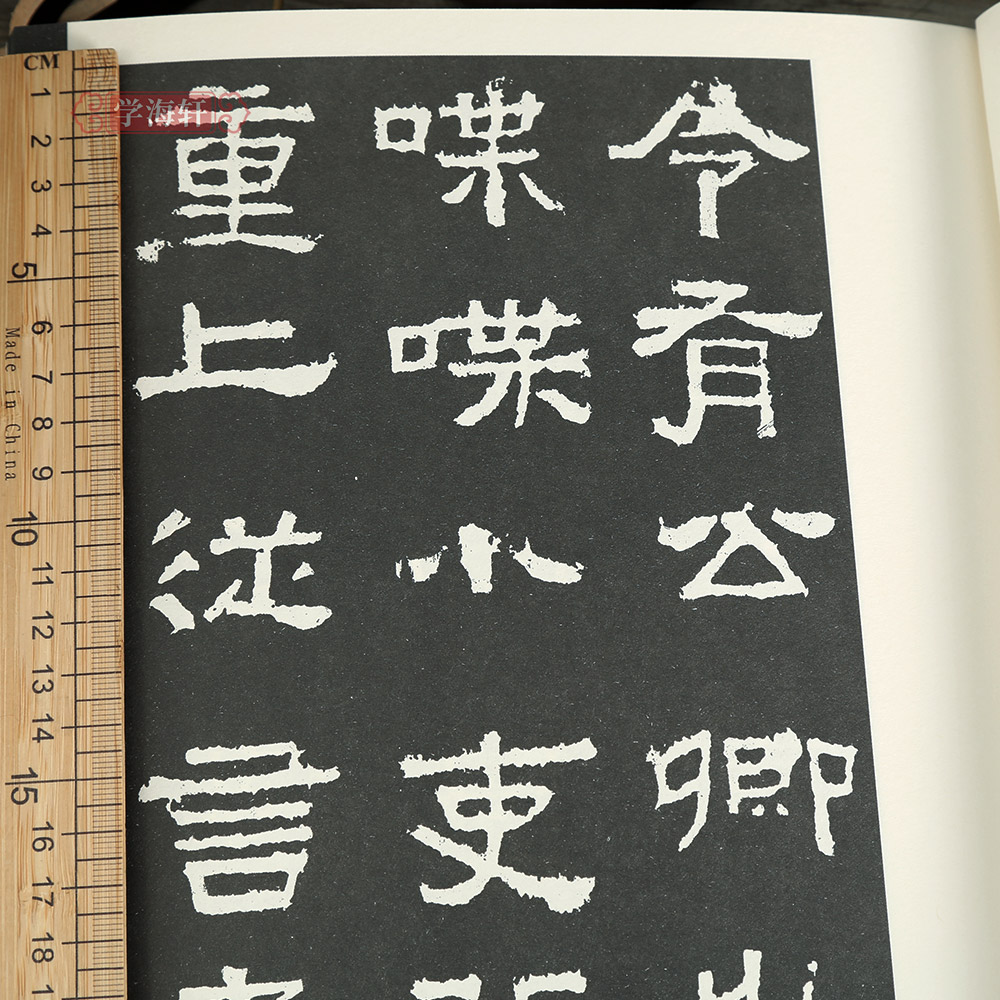 令有公卿
喋喋小吏
重上從言
学海轩
CM
1
2
3
4
5
6
7
8
9
10
11
12
13
14
15
16
17
18
Made in China